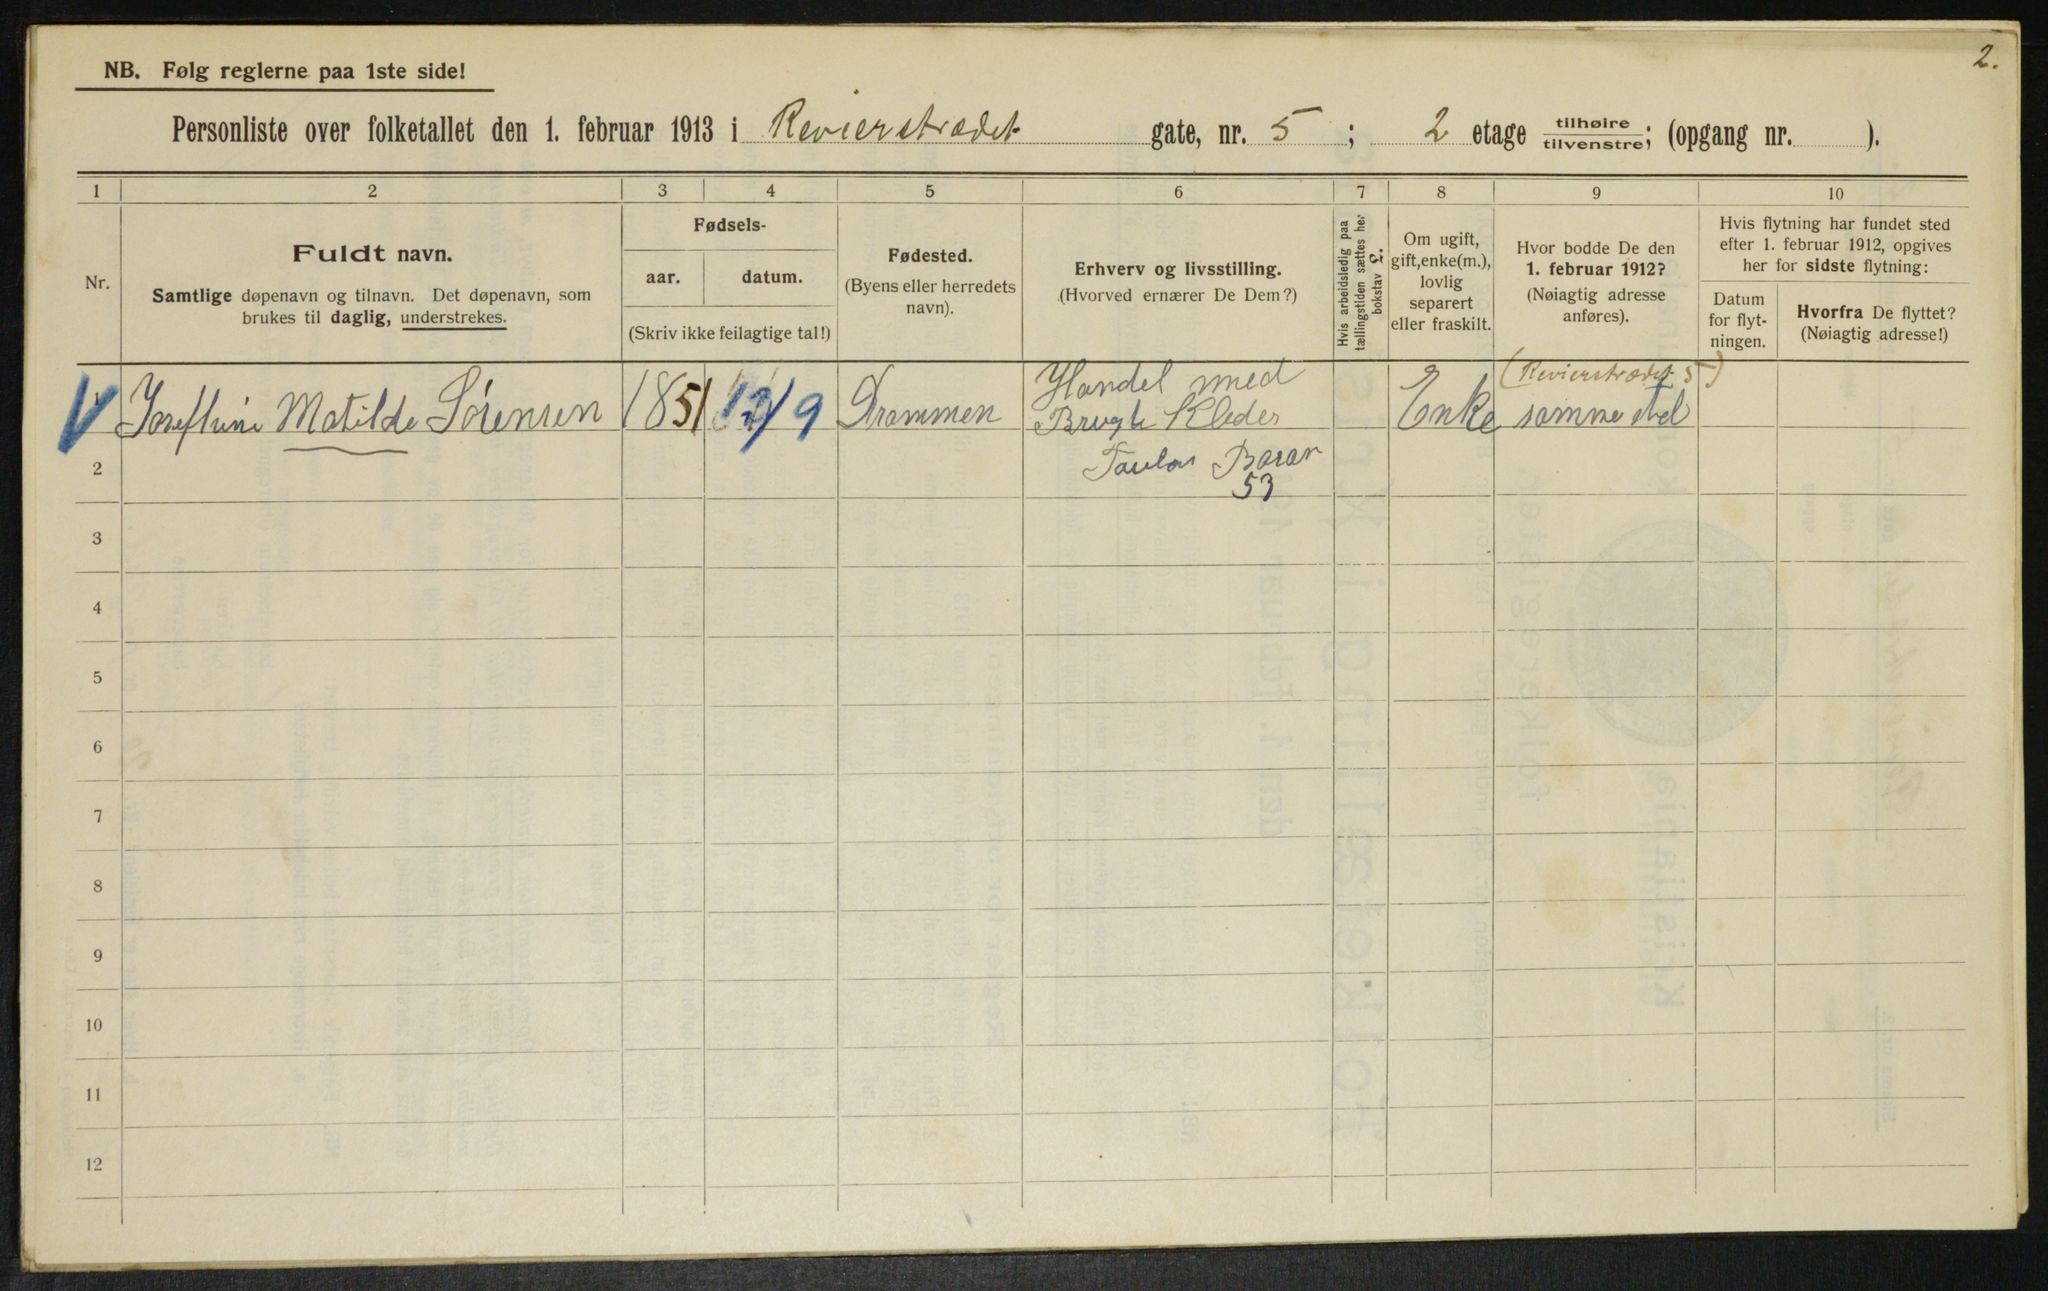 2.
NB. Følg reglerne paa 1ste side!
Personliste over folketallet den 1. februar 1913 i Revierstrædet gate, nr. 5 ; 2 etage tilhøire/tilvenstre; (opgang nr. ).
1 2 3 4 5 6 7 8 9 10
Nr.
Fuldt navn.
Samtlige døpenavn og tilnavn. Det døpenavn, som
brukes til daglig, understrekes.
Fødsels-
aar. datum.
(Skriv ikke feilagtige tal!)
Fødested.
(Byens eller herredets
navn).
Erhverv og livsstilling.
(Hvorved ernærer De Dem?)
Hvis arbeidsledig paa
tællingstiden sættes her
bokstav L.
Om ugift,
gift, enke(m.),
lovlig
separert
eller fraskilt.
Hvor bodde De den
1. februar 1912?
(Nøiagtig adresse
anføres).
Hvis flytning har fundet sted
efter 1. februar 1912, opgives
her for sidste flytning:
Datum
for flyt-
ningen.
Hvorfra De flyttet?
(Nøiagtig adresse!)
(Revierstrædet 5)
V Josefhine Matilde Sørensen 1851 12/9 Drammen Handel med
Brugte Klæder Enke samme sted
Basar
53
2
3
4
5
6
7
8
9
10
11
12